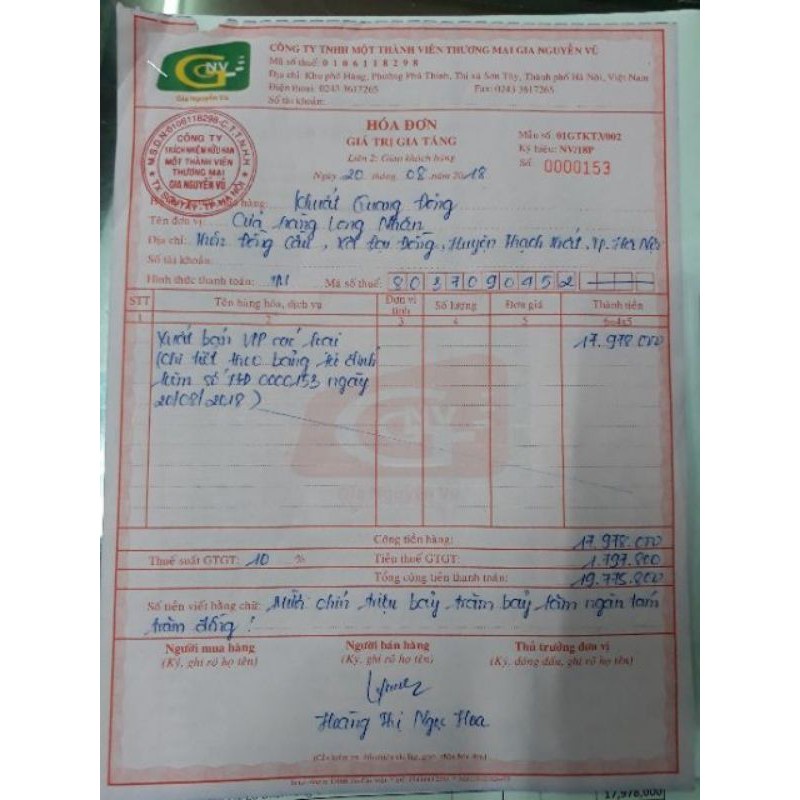 GNV
Gia Nguyễn Vũ
CÔNG TY TNHH MỘT THÀNH VIÊN THƯƠNG MẠI GIA NGUYỄN VŨ
Mã số thuế: 0106118298
Địa chỉ: Khu phố Hàng, Phường Phú Thịnh, Thị xã Sơn Tây, Thành phố Hà Nội, Việt Nam
Điện thoại: 0243 3617265 Fax: 0243 3617265
Số tài khoản:
M.S.D.N:0106118298-C.T.T.N.H.H
CÔNG TY
TRÁCH NHIỆM HỮU HẠN
MỘT THÀNH VIÊN
THƯƠNG MẠI
GIA NGUYỄN VŨ
TX.SƠN TÂY-TP.HÀ NỘI
HÓA ĐƠN
GIÁ TRỊ GIA TĂNG
Liên 2: Giao khách hàng
Ngày 20 tháng 08 năm 2018
Mẫu số: 01GTKT3/002
Ký hiệu: NV/18P
Số: 0000153
hàng: Khuất Cương Đông
Tên đơn vị: Cửa hàng Long Nhàn
Địa chỉ: Thôn Đồng Cầu, Xã Đại Đồng, Huyện Thạch Thất, Tp. Hà Nội
Số tài khoản:
Hình thức thanh toán: TM Mã số thuế: 8037090452
STT Tên hàng hóa, dịch vụ Đơn vị tính Số lượng Đơn giá Thành tiền
1 2 3 4 5 6=4x5
Xuất bán VPP các loại 17.978.000
(Chi tiết theo bảng kê đính
kèm số HĐ 0000153 ngày
20/08/2018)
GNV
Gia Nguyễn Vũ
Cộng tiền hàng: 17.978.000
Thuế suất GTGT: 10 % Tiền thuế GTGT: 1.797.800
Tổng cộng tiền thanh toán: 19.775.800
Số tiền viết bằng chữ: Mười chín triệu bảy trăm bảy lăm ngàn tám
trăm đồng!
Người mua hàng Người bán hàng Thủ trưởng đơn vị
(Ký, ghi rõ họ tên) (Ký, ghi rõ họ tên) (Ký, đóng dấu, ghi rõ họ tên)
Hoàng Thị Ngọc Hoa
17,978,000